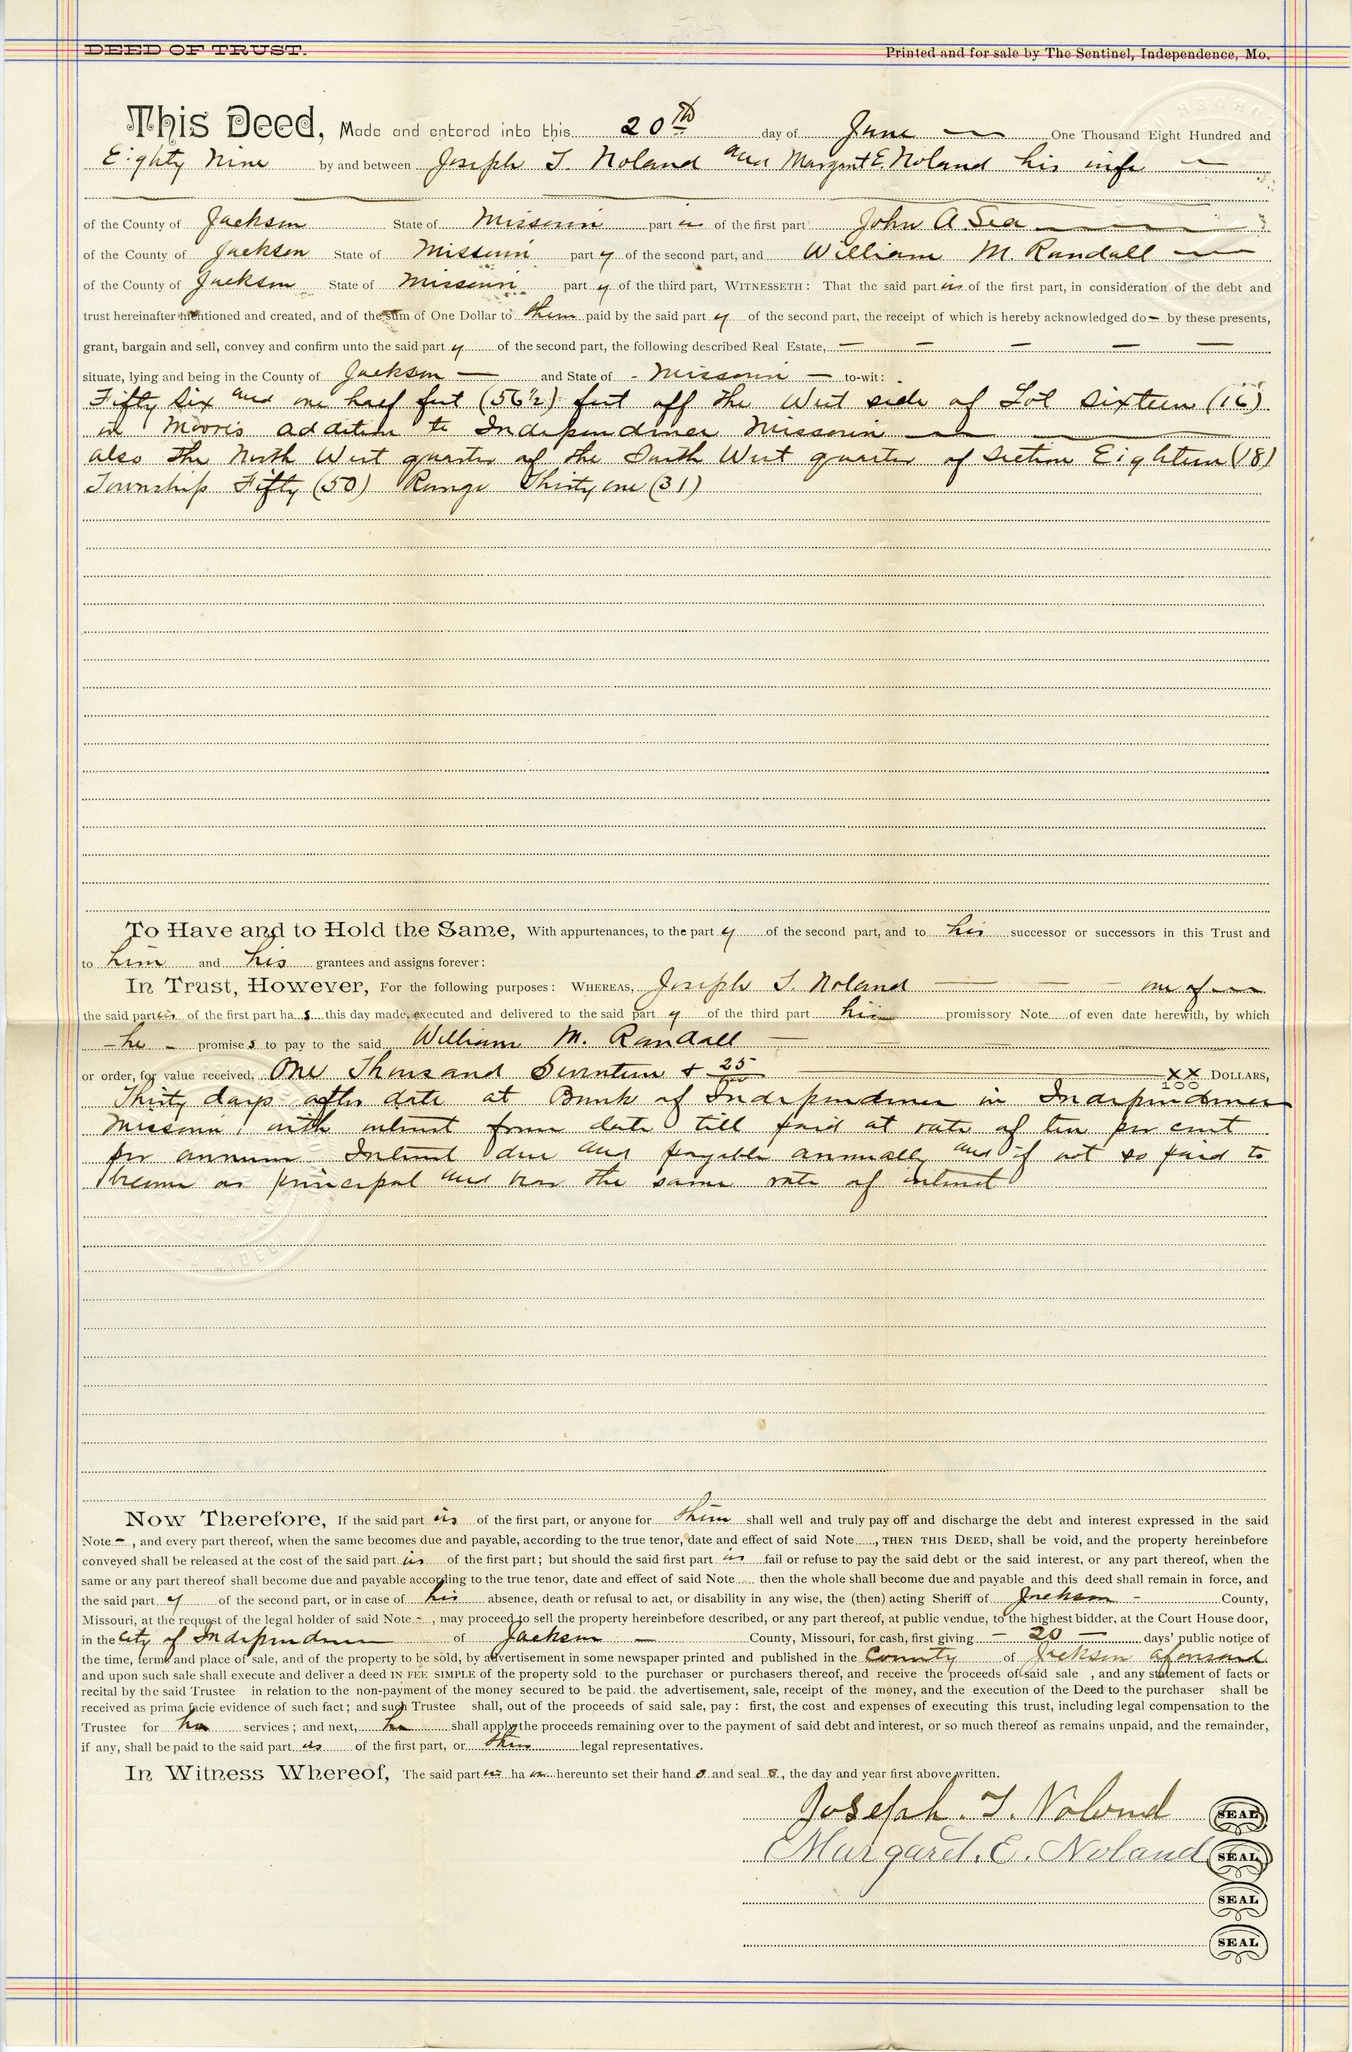 DEED OF TRUST. Printed and for sale by The Sentinel, Independence, Mo.
This Deed, Made and entered into this 20th day of June One Thousand Eight Hundred and
Eighty Nine by and between Joseph T. Noland and Margret E. Noland his wife
of the County of Jackson State of Missouri part ies of the first part John A Sea
of the County of Jackson State of Missouri part y of the second part, and William M. Randall
of the County of Jackson State of Missouri part y of the third part, WITNESSETH: That the said part ies of the first part, in consideration of the debt and
trust hereinafter mentioned and created, and of the sum of One Dollar to them paid by the said part y of the second part, the receipt of which is hereby acknowledged do — by these presents,
grant, bargain and sell, convey and confirm unto the said part y of the second part, the following described Real Estate, — — — — —
situate, lying and being in the County of Jackson — and State of - Missouri — to-wit:
Fifty Six and one half feet (56½) feet off the West side of Lot Sixteen (16)
in Moores addition to Independence Missouri
also the North West quarter of the South West quarter of Section Eighteen (18)
Township Fifty (50) Range Thirty one (31)
To Have and to Hold the Same, With appurtenances, to the part y of the second part, and to his successor or successors in this Trust and
to him and his grantees and assigns forever:
In Trust, However, For the following purposes: WHEREAS, Joseph T. Noland — — — one of
the said part ies of the first part ha s this day made, executed and delivered to the said part y of the third part his promissory Note of even date herewith, by which
- he - promise s to pay to the said William M. Randall —
or order, for value received, One Thousand Seventeen & 25/00 — xx/100 DOLLARS,
Thirty days after date at Bank of Independence in Independence
Missouri, with interest from date till paid at rate of ten per cent
per annum Interest due and payable annually and if not so paid to
become as principal and bear the same rate of interest
Now Therefore, If the said part ies of the first part, or anyone for them shall well and truly pay off and discharge the debt and interest expressed in the said
Note - , and every part thereof, when the same becomes due and payable, according to the true tenor, date and effect of said Note, THEN THIS DEED, shall be void, and the property hereinbefore
conveyed shall be released at the cost of the said part ies of the first part; but should the said first part ies fail or refuse to pay the said debt or the said interest, or any part thereof, when the
same or any part thereof shall become due and payable according to the true tenor, date and effect of said Note then the whole shall become due and payable and this deed shall remain in force, and
the said part y of the second part, or in case of his absence, death or refusal to act, or disability in any wise, the (then) acting Sheriff of Jackson - County,
Missouri, at the request of the legal holder of said Note - , may proceed to sell the property hereinbefore described, or any part thereof, at public vendue, to the highest bidder, at the Court House door,
in the City of Independence of Jackson — County, Missouri, for cash, first giving — 20 — days' public notice of
the time, terms and place of sale, and of the property to be sold, by advertisement in some newspaper printed and published in the County of Jackson aforesaid
and upon such sale shall execute and deliver a deed IN FEE SIMPLE of the property sold to the purchaser or purchasers thereof, and receive the proceeds of said sale , and any statement of facts or
recital by the said Trustee in relation to the non-payment of the money secured to be paid. the advertisement, sale, receipt of the money, and the execution of the Deed to the purchaser shall be
received as prima facie evidence of such fact; and such Trustee shall, out of the proceeds of said sale, pay: first, the cost and expenses of executing this trust, including legal compensation to the
Trustee for his services; and next, he shall apply the proceeds remaining over to the payment of said debt and interest, or so much thereof as remains unpaid, and the remainder,
if any, shall be paid to the said part ies of the first part, or their legal representatives.
In Witness Whereof, The said part ies ha ve hereunto set their hand s and seal s, the day and year first above written.
Joseph. T. Noland SEAL
Margaret. E. Noland SEAL
SEAL
SEAL